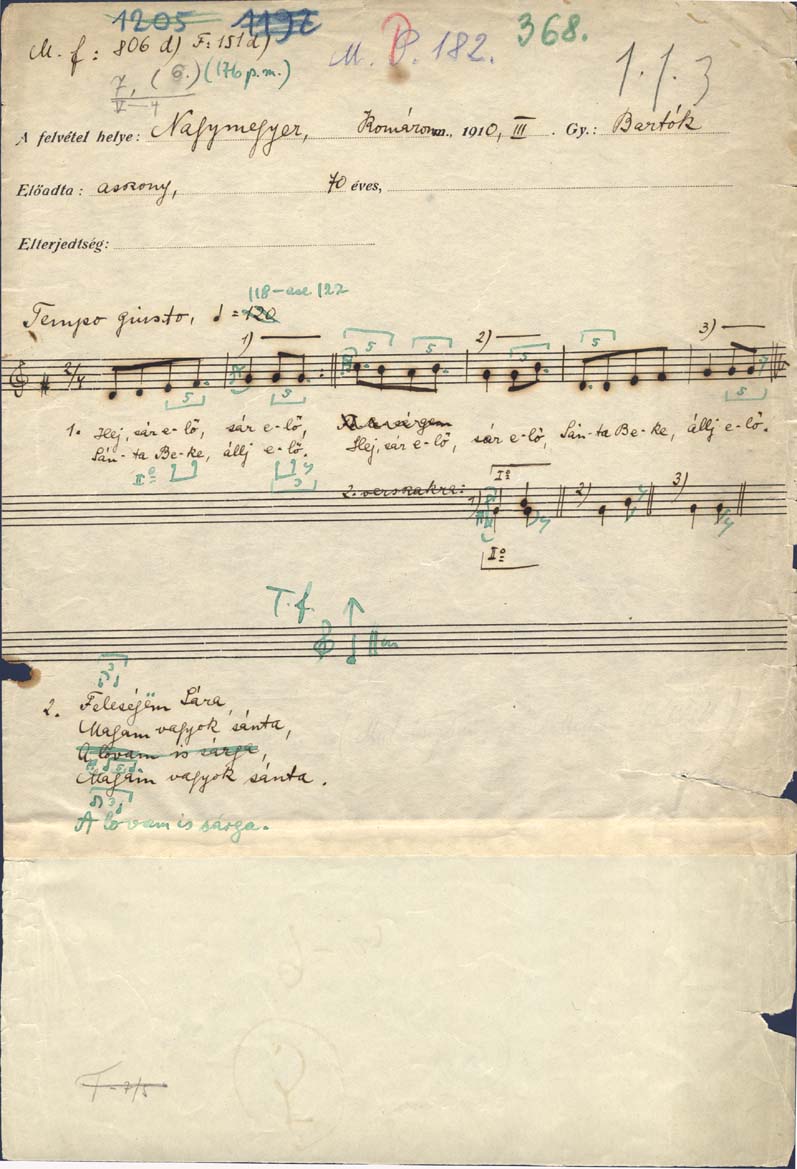 1205 1192
M. f: 806 d) F: 151 d)
M. P. 182.
368.
7, (6.) (176 p.m.)
V—4
1.1.3
A felvétel helye: Nagymegyer, Komárom m., 1910, III. Gy.: Bartók
Előadta: asszony, 70 éves,
Elterjedtség:
118 – 122
Tempo giusto, ♩ = 120
1) 2) 3)
2/4
5 5 5 5 5 5 5
1. Hej, sár e-lő, sár e-lő, Hej, sár e-lő, sár e-lő, Sán-ta Be-ke, állj e-lő.
Sán-ta Be-ke, állj e-lő.
IIº
3
2. versszakra:
Iº
1) 2) 3)
IIº
T. f.
2. Feleségëm Sára,
Magam vagyok sánta,
A lovam is sárga,
Magam vagyok sánta.
A lovam is sárga.